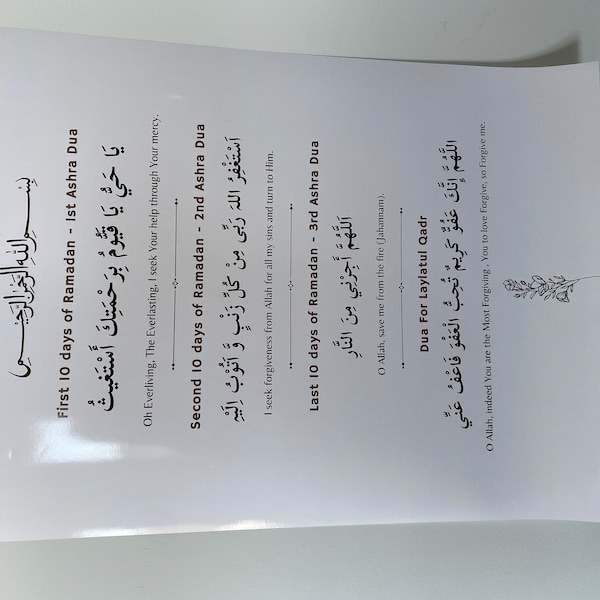 بِسْمِ اللهِ الرَّحْمٰنِ الرَّحِيْمِ
First 10 days of Ramadan - 1st Ashra Dua
يَا حَيُّ يَا قَيُّوْمُ بِرَحْمَتِكَ أَسْتَغِيْثُ
Oh Everliving, The Everlasting, I seek Your help through Your mercy.
Second 10 days of Ramadan - 2nd Ashra Dua
اَسْتَغْفِرُ اللهَ رَبِّى مِنْ كُلِّ ذَنْبٍ وَّ اَتُوْبُ اِلَيْهِ
I seek forgiveness from Allah for all my sins and turn to Him.
Last 10 days of Ramadan - 3rd Ashra Dua
اَللَّهُمَّ أَجِرْنِي مِنَ النَّارِ
O Allah, save me from the fire (Jahannam).
Dua For Laylatul Qadr
اللَّهُمَّ إِنَّكَ عَفُوٌّ كَرِيمٌ تُحِبُّ الْعَفْوَ فَاعْفُ عَنِّي
O Allah, indeed You are the Most Forgiving , You to love Forgive, so Forgive me.